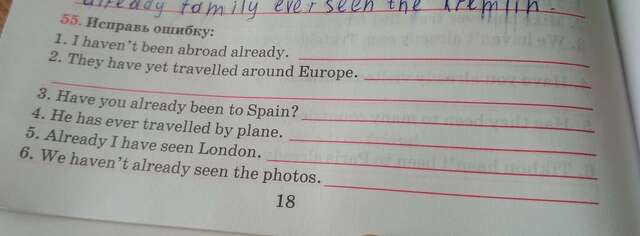 already family ever seen the Kremlin.
55. Исправь ошибку:
1. I haven't been abroad already.
2. They have yet travelled around Europe.
3. Have you already been to Spain?
4. He has ever travelled by plane.
5. Already I have seen London.
6. We haven't already seen the photos.
18